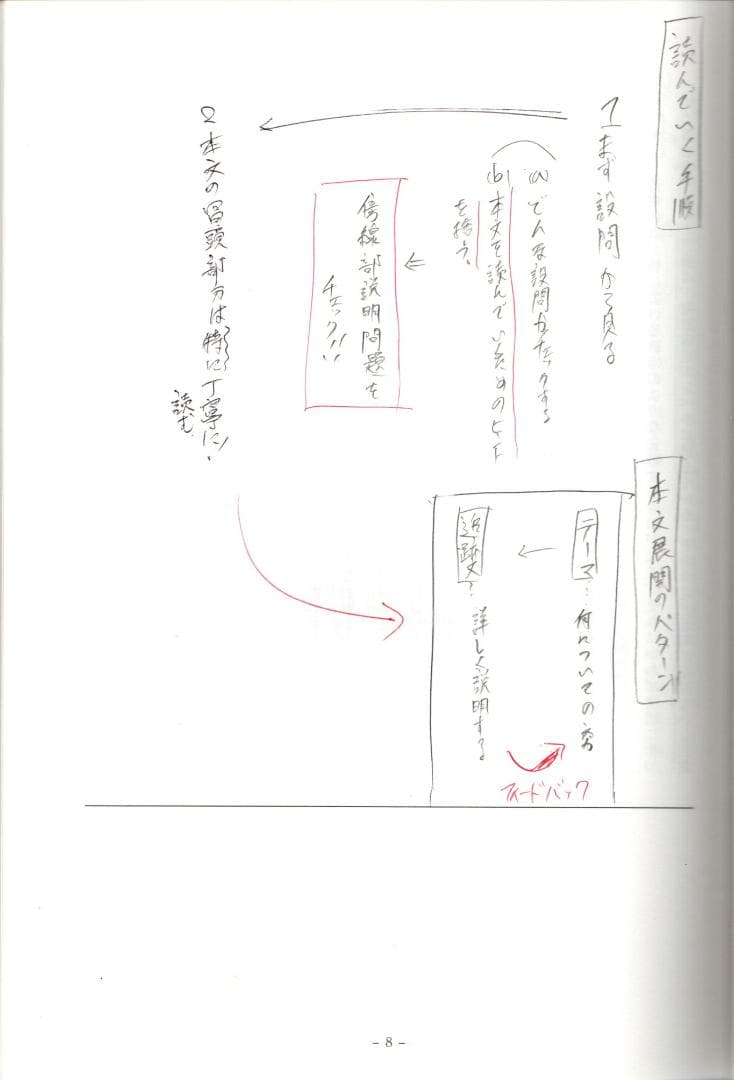 読んでいく手順
1 まず設問から見る
(a) どんな設問かチェックする
(b) 本文を読んでいくためのヒント
を拾う。
傍線部説明問題を
チェック!!
2 本文の冒頭部分は特に丁寧に
読む
本文展開のパターン
テーマ…何についての文章
追跡文?
詳しく説明する
フィードバック
- 8 -